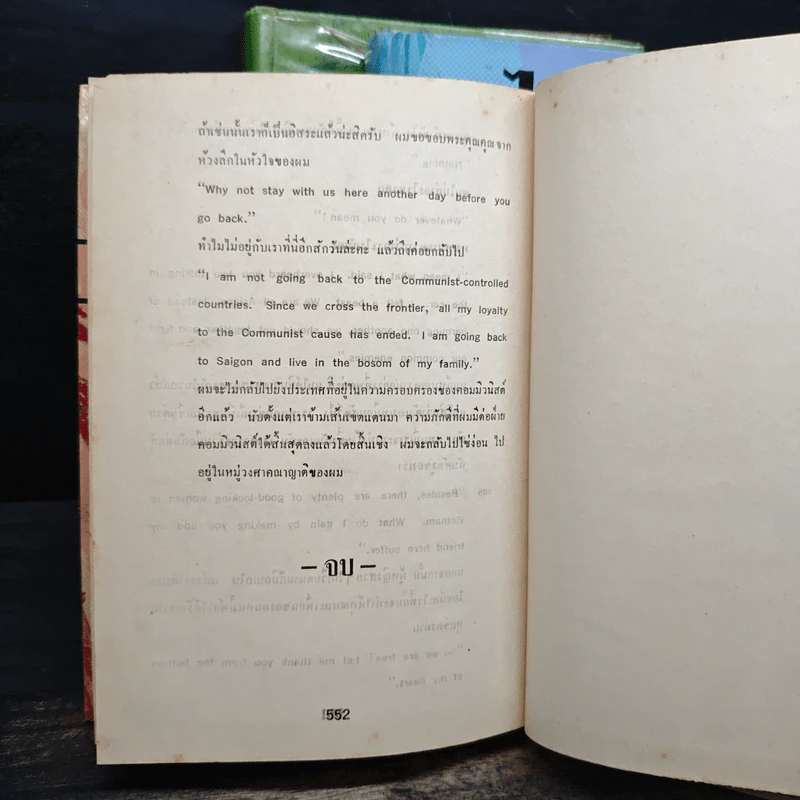 ถ้าเช่นนั้นเราก็เป็นอิสระแล้วน่ะสิครับ ผมขอขอบพระคุณคุณจาก
ห้วงลึกในหัวใจของผม
“Why not stay with us here another day before you
go back.”
ทำไมไม่อยู่กับเราที่นี่อีกสักวันล่ะคะ แล้วถึงค่อยกลับไป
“I am not going back to the Communist-controlled
countries. Since we cross the frontier, all my loyalty
to the Communist cause has ended. I am going back
to Saigon and live in the bosom of my family.”
ผมจะไม่กลับไปยังประเทศที่อยู่ในความครอบครองของคอมมิวนิสต์
อีกแล้ว นับตั้งแต่เราข้ามเส้นเขตแดนมา ความภักดีที่ผมมีต่อฝ่าย
คอมมิวนิสต์ได้สิ้นสุดลงแล้วโดยสิ้นเชิง ผมจะกลับไปไซ่ง่อน ไป
อยู่ในหมู่วงศาคณาญาติของผม
– จบ –
552